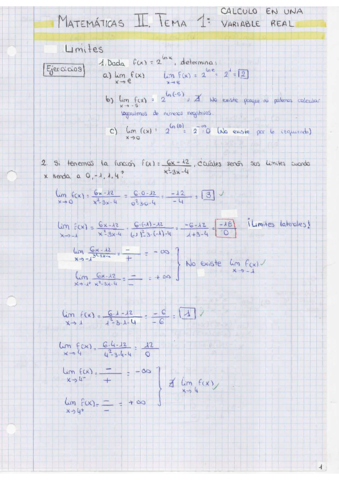 MATEMÁTICAS II. TEMA 1: CÁLCULO EN UNA VARIABLE REAL
Límites
Ejercicios
1. Dada f(x) = 2^(ln x), determina:
a) lim f(x) x→e lim f(x) = 2^(ln e) = 2^1 = 2
b) lim f(x) = 2^(ln(-5)) = ∄ No existe porque no podemos calcular
logaritmos de números negativos.
c) lim f(x) x→0 = 2^(ln(0)) = 2^(-∞) = 0 (No existe por la izquierda)
2. Si tenemos la función f(x) = 6x-12 / x²-3x-4, ¿Cuáles serán sus límites cuando
x tienda a 0, -1, 1, 4?
lim f(x) x→0 = 6x-12 / x²-3x-4 = 6·0-12 / 0²-3·0-4 = -12 / -4 = 3
lim f(x) x→-1 = 6x-12 / x²-3x-4 = 6·(-1)-12 / (-1)²-3·(-1)-4 = -6-12 / 1+3-4 = -18 / 0 ¡Límites laterales!
lim x→-1⁻ 6x-12 / x²-3x-4 = - / + = -∞
No existe lim f(x) x→-1
lim x→-1⁺ 6x-12 / x²-3x-4 = - / - = +∞
lim f(x) x→1 = 6·1-12 / 1²-3·1-4 = -6 / -6 = 1
lim f(x) x→4 = 6·4-12 / 4²-3·4-4 = 12 / 0
lim f(x) x→4⁻ = - / + = -∞
∄ lim f(x) x→4
lim f(x) x→4⁺ = - / - = +∞
1